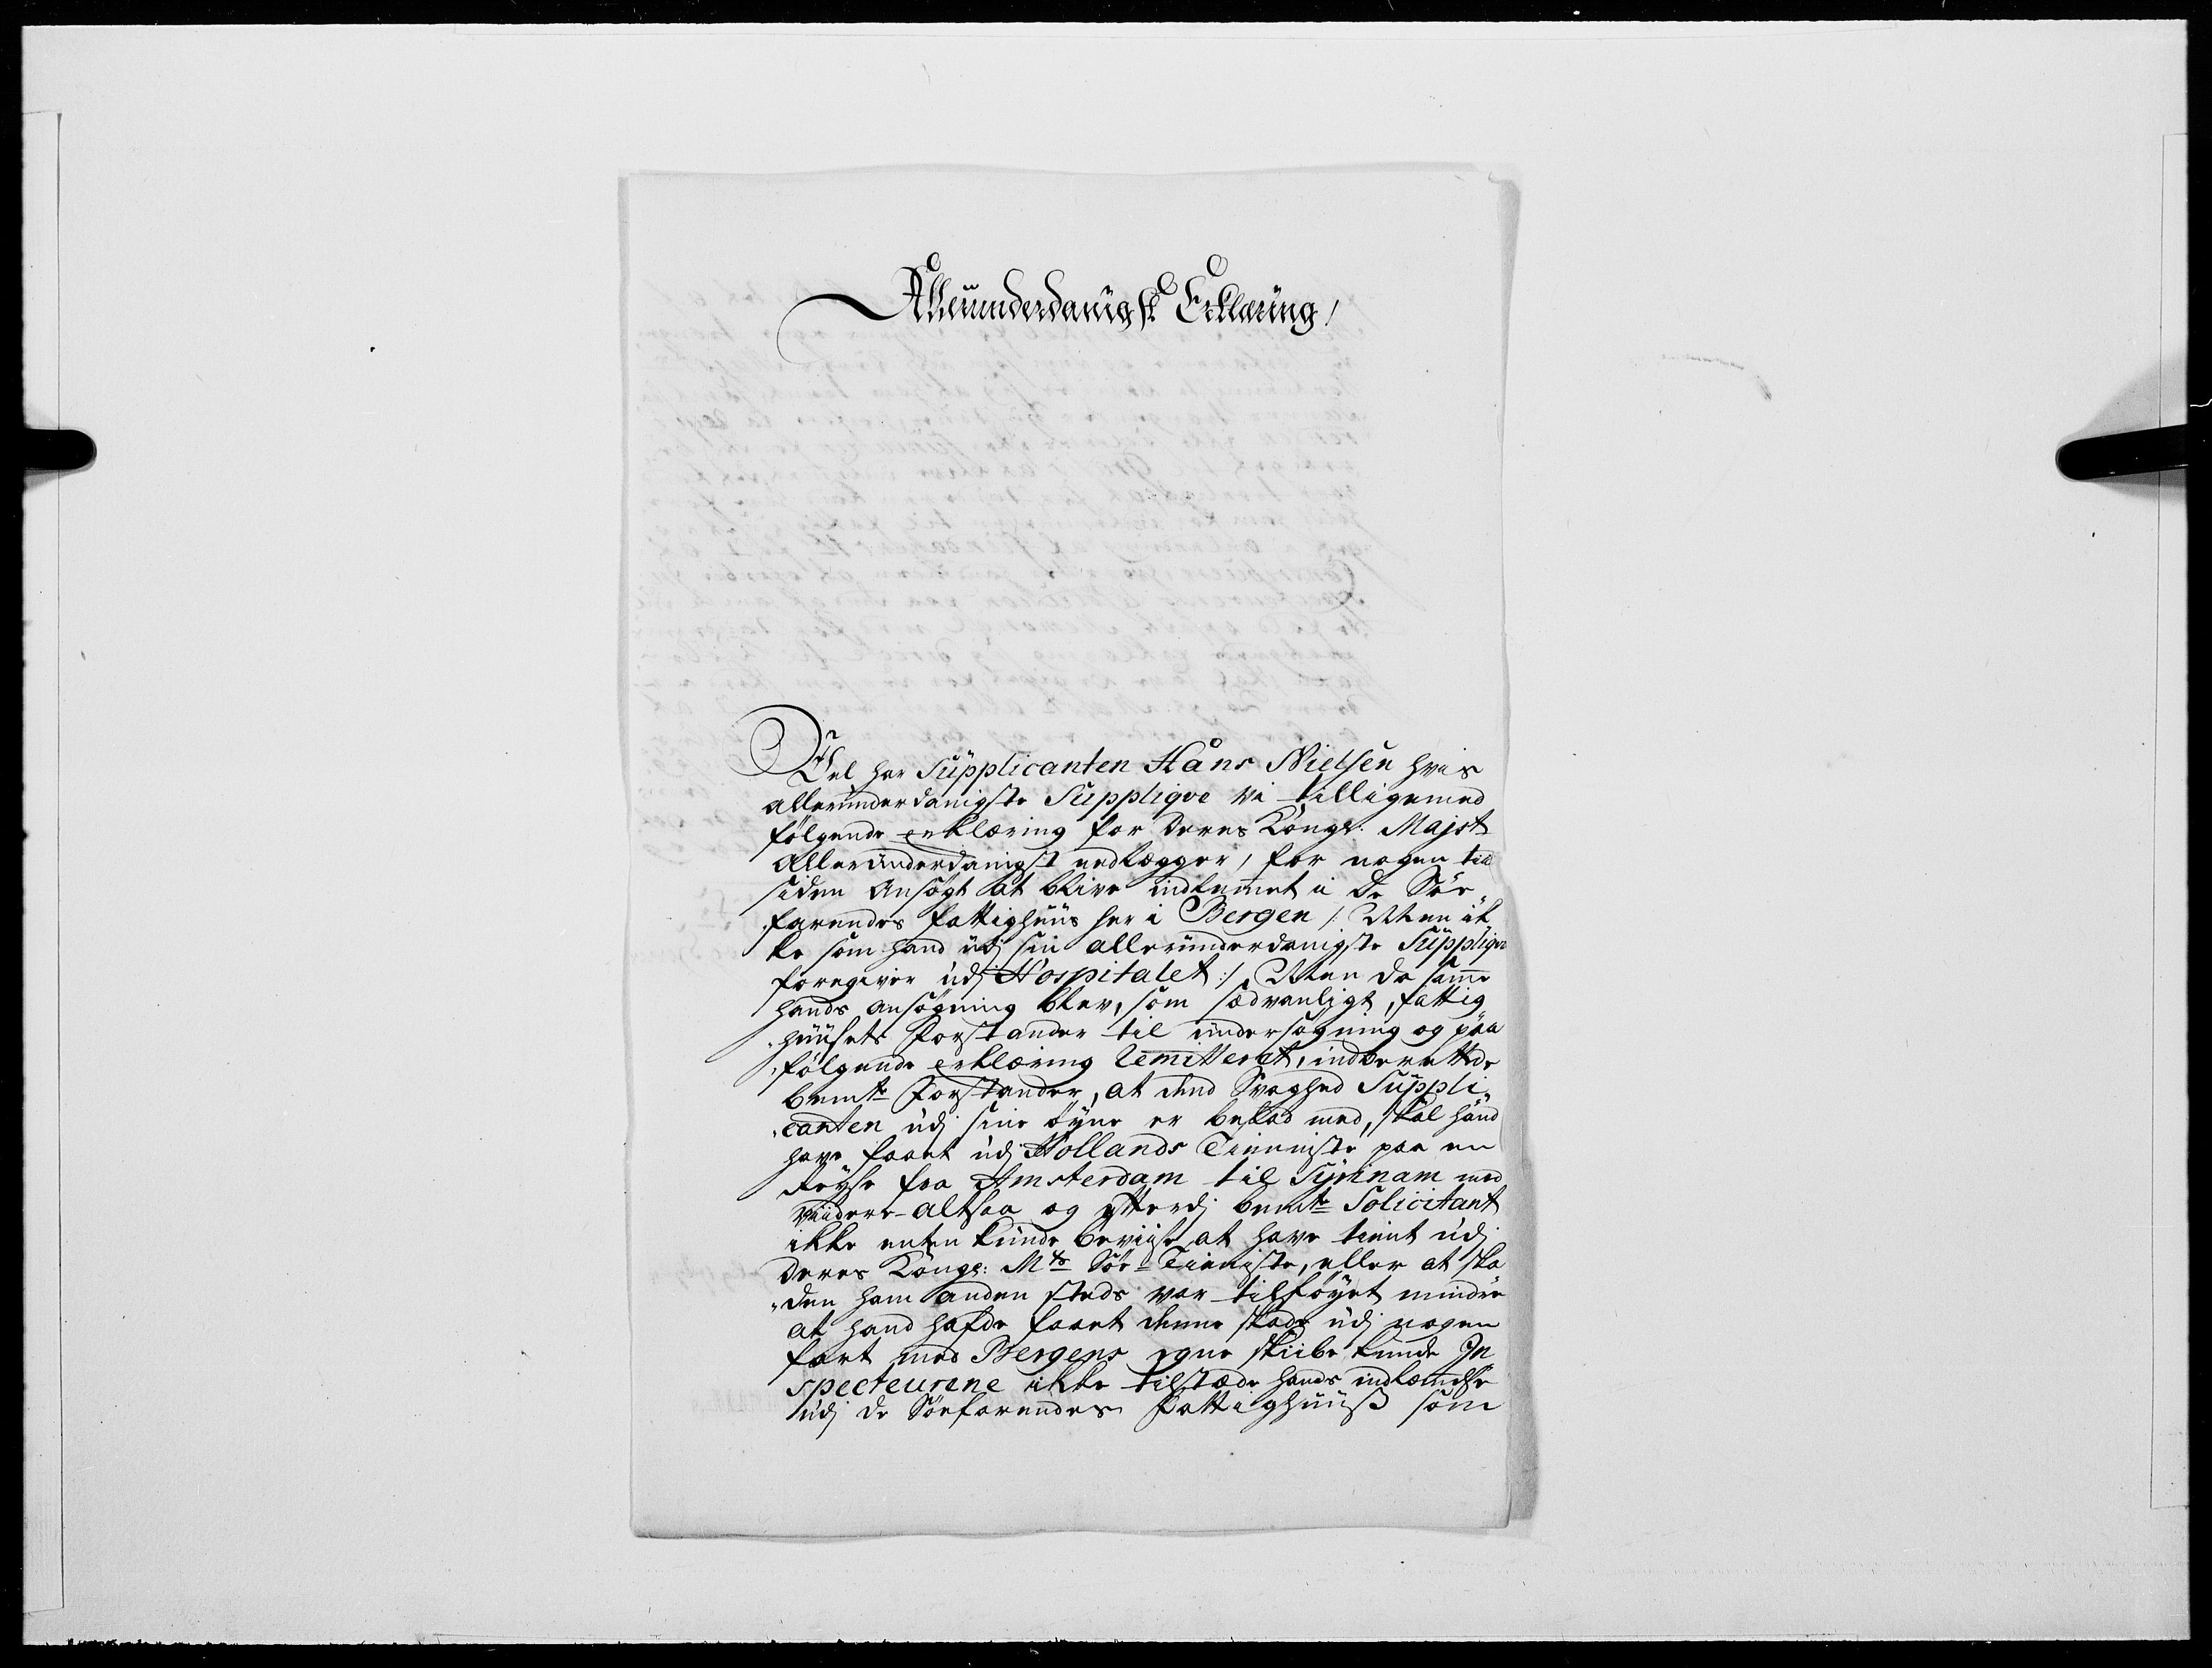 Allerunderdanigst Erklæring!
Vel har Supplicanten Hans Nielsen hvis
allerunderdanigste Suppliqve vi tilligemed
følgende erklæring for Deres Kongl: Majst
Allerunderdanigst nedlægger, for nogen tid
siden Ansøgt at blive indlemmet i De Søe-
farendes fattighuus her i Bergen /: Men ik-
ke som hand udj sin allerunderdanigste Suppliqve
foregiver udj Hospitalet :/ Men da samme
hands ansøgning blev, som sædvanligt, fattig
huusets Forstander til undersøgning og paa
følgende erklæring Remitteret, indberettede
bemte Forstander, at dend Svaghed Suppli-
canten udj sine øyne er befad med, skal hand
have faaet udj Hollands Tienniste paa en
Reyse fra Amsterdam til Syrinam med
viidere- altsaa og efterdj bemte Solicitant
ikke enten kunde beviise at have tient udj
Deres Kongl: Mts Søe-Tienniste, eller at ska
den ham anden steds var tilføyet mindre
at hand hafde faaet denne skade udj nogen
fart med Bergens egne skiibe kunde In
specteurene ikke tilstæde hands indlæmelse
udj de Søefarendes Fattighuuß som